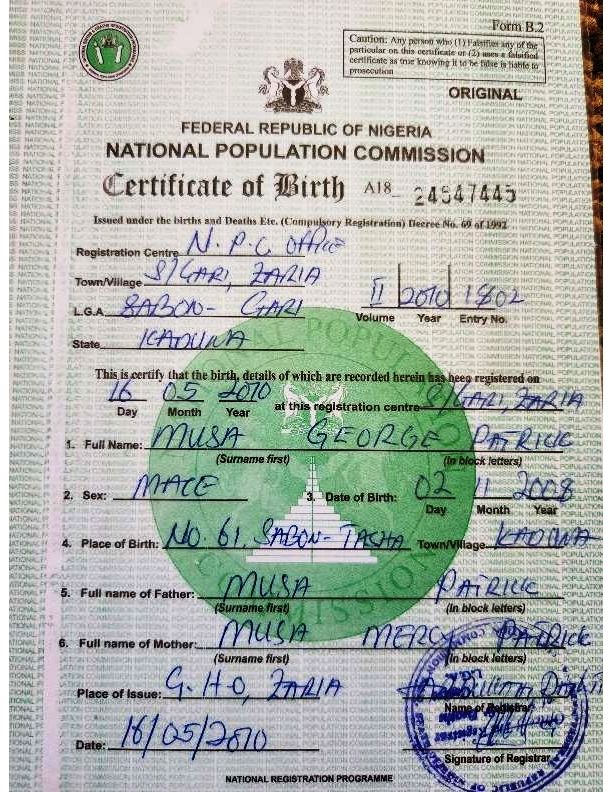 Form B.2
Caution: Any person who (1) Falsifies any of the
particular on this certificate or (2) uses a falsified
certificate as true knowing it to be false is liable to
prosecution
ORIGINAL
FEDERAL REPUBLIC OF NIGERIA
NATIONAL POPULATION COMMISSION
Certificate of Birth A18 24547445
Issued under the births and Deaths Etc. (Compulsory Registration) Decree No. 69 of 1992
Registration Centre N.P.C OFFICE
Town/Village S/GARI, ZARIA
L.G.A SABON-GARI II 2010 1802
Volume Year Entry No.
State KADUNA
This is certify that the birth, details of which are recorded herein has been registered on
16 05 2010 at this registration centre S/GARI, ZARIA
Day Month Year
1. Full Name: MUSA GEORGE PATRICK
(Surname first) (In block letters)
2. Sex: MALE 3. Date of Birth: 02 11 2008
Day Month Year
4. Place of Birth: No. 61, SABON-TASHA Town/Village KADUNA
5. Full name of Father: MUSA PATRICK
(Surname first) (In block letters)
6. Full name of Mother: MUSA MERCY PATRICK
(Surname first) (In block letters)
Place of Issue: G.H.O, ZARIA
Name of Registrar
Date: 16/05/2010
Signature of Registrar
NATIONAL REGISTRATION PROGRAMME